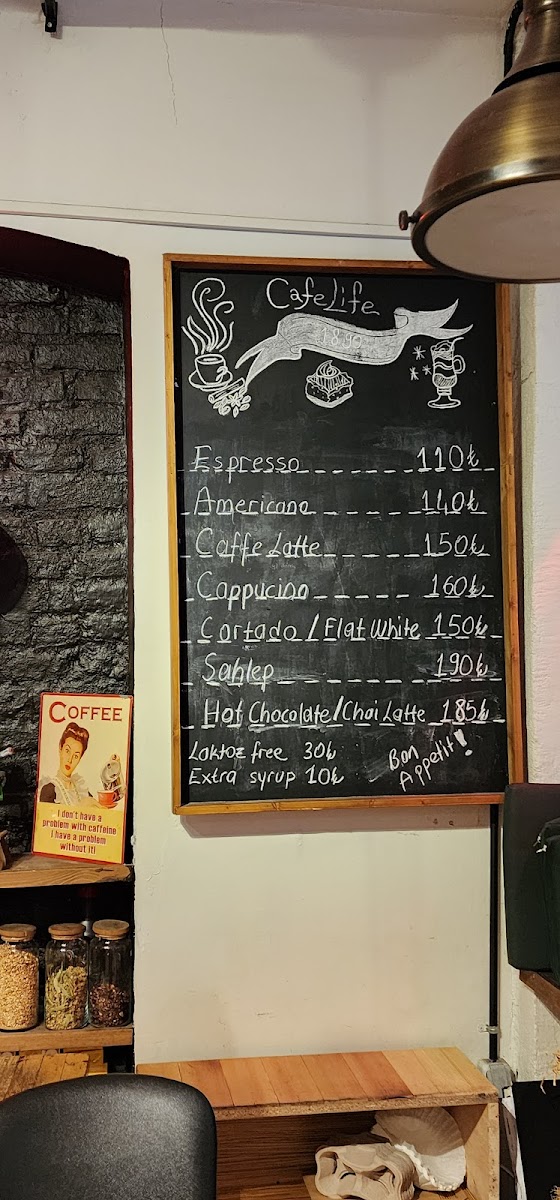 Cafe Life
1899
Espresso 110₺
Americano 140₺
Caffe Latte 150₺
Cappucino 160₺
Cortado / Flat White 150₺
Sahlep 190₺
Hot Chocolate/Chai Latte 185₺
Laktoz free 30₺
Extra syrup 10₺
Bon
Appetit!
COFFEE
I don't have a
problem with caffeine
I have a problem
without it!